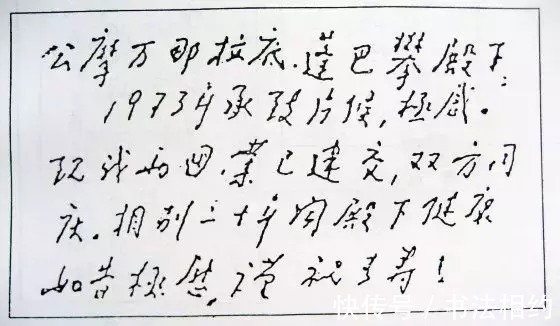 公摩万那拉底.蓬巴攀殿下:
1973年承致片候,极感。
现我两国,业已建交,双方同
庆。相别二十年闻殿下健康
如昔极慰,谨祝长寿!
快传号/书法相约